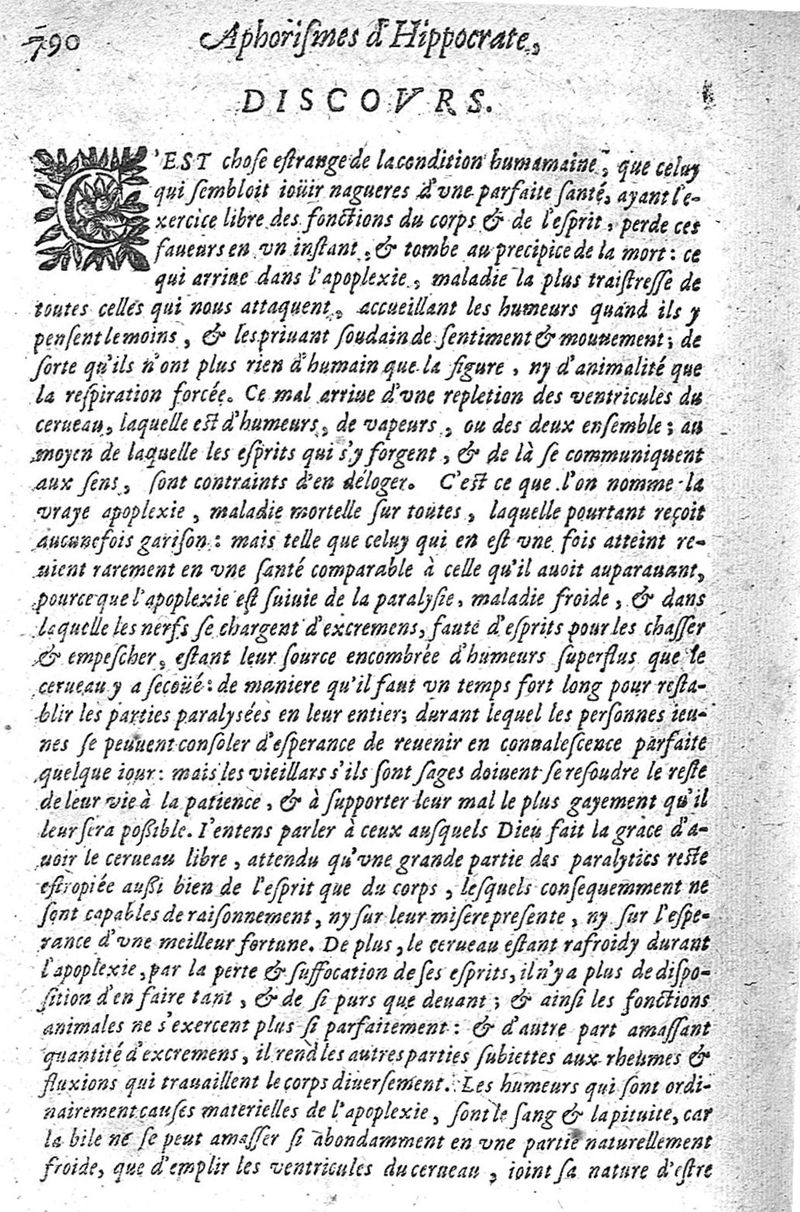 790
Aphorismes d'Hippocrate,
DISCOVRS.
C'EST chose estrange de la condition humamaine, que celuy
qui sembloit ioüir nagueres d'vne parfaite santé, ayant l'e-
xercice libre des fonctions du corps & de l'esprit, perde ces
faueurs en vn instant, & tombe au precipice de la mort: ce
qui arriue dans l'apoplexie, maladie la plus traistresse de
toutes celles qui nous attaquent, accueillant les humeurs quand ils y
pensent le moins, & les priuant soudain de sentiment & mouuement; de
sorte qu'ils n'ont plus rien d'humain que la figure, ny d'animalité que
la respiration forcée. Ce mal arriue d'vne repletion des ventricules du
cerueau, laquelle est d'humeurs, de vapeurs, ou des deux ensemble; au
moyen de laquelle les esprits qui s'y forgent, & de là se communiquent
aux sens, sont contraints d'en déloger. C'est ce que l'on nomme la
vraye apoplexie, maladie mortelle sur toutes, laquelle pourtant reçoit
aucunefois garison: mais telle que celuy qui en est vne fois atteint re-
uient rarement en vne santé comparable à celle qu'il auoit auparauant,
pource que l'apoplexie est suiuie de la paralysie, maladie froide, & dans
laquelle les nerfs se chargent d'excremens, faute d'esprits pour les chasser
& empescher, estant leur source encombrée d'humeurs superflus que le
cerueau y a secoüé: de maniere qu'il faut vn temps fort long pour resta-
blir les parties paralysées en leur entier; durant lequel les personnes ieu-
nes se peuuent consoler d'esperance de reuenir en conualescence parfaite
quelque iour: mais les vieillars s'ils sont sages doiuent se resoudre le reste
de leur vie à la patience, & à supporter leur mal le plus gayement qu'il
leur sera possible. I'entens parler à ceux ausquels Dieu fait la grace d'a-
uoir le cerueau libre, attendu qu'vne grande partie des paralytics reste
estropiée aussi bien de l'esprit que du corps, lesquels consequemment ne
sont capables de raisonnement, ny sur leur misere presente, ny sur l'espe-
rance d'vne meilleur fortune. De plus, le cerueau estant rafroidy durant
l'apoplexie, par la perte & suffocation de ses esprits, il n'y a plus de dispo-
sition d'en faire tant, & de si purs que deuant; & ainsi les fonctions
animales ne s'exercent plus si parfaitement: & d'autre part amassant
quantité d'excremens, il rend les autres parties subiettes aux rheumes &
fluxions qui trauaillent le corps diuersement. Les humeurs qui sont ordi-
nairement causes materielles de l'apoplexie, sont le sang & la pituite, car
la bile ne se peut amasser si abondamment en vne partie naturellement
froide, que d'emplir les ventricules du cerueau, ioint sa nature d'estre